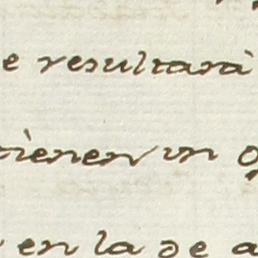 e resultarà
tienen un
en la de a